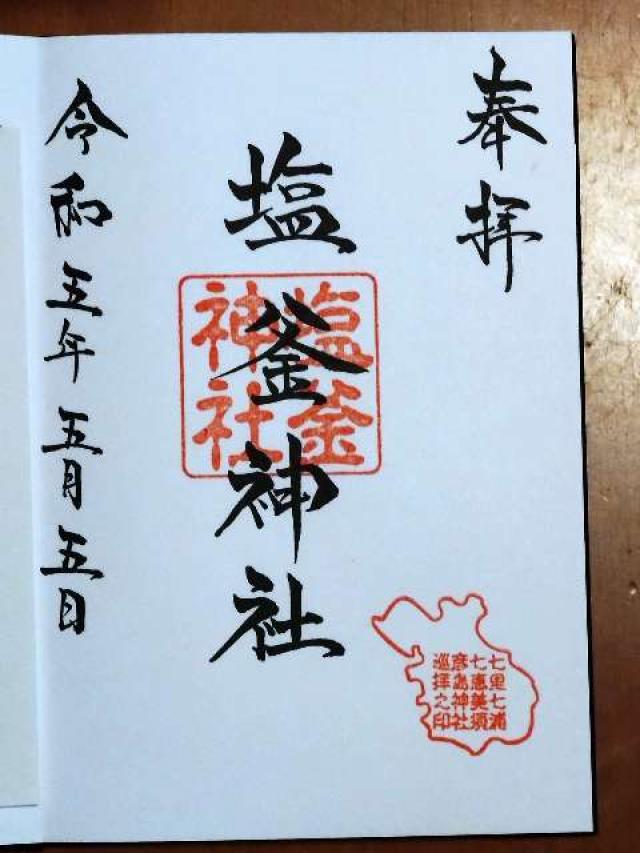 奉拝
塩釜神社
塩釜
神社
令和五年五月五日
七里七浦
七恵美須
彦島神社
巡拝之印